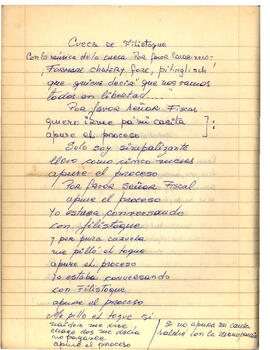 CUECA DE Filistoque
Con la música de la cueca Por favor
que quiere decir que nos vamos
todos en libertad...
Por favor Señor Fiscal
quiero irme pa' mi casita
apure el proceso
Solo soy simpatizante
llevo como cinco meses
apure el proceso
Por favor Señor Fiscal
apure el proceso
Yo estaba conversando
con filistoque
y por pura casuela
me pilló el toque
apure el proceso
Yo estaba conversando
con Filistoque
apure el proceso
Me pilló el toque si
nadie me cree
me decía
no
apure el proceso
Si no apura mi causa
saldré con la